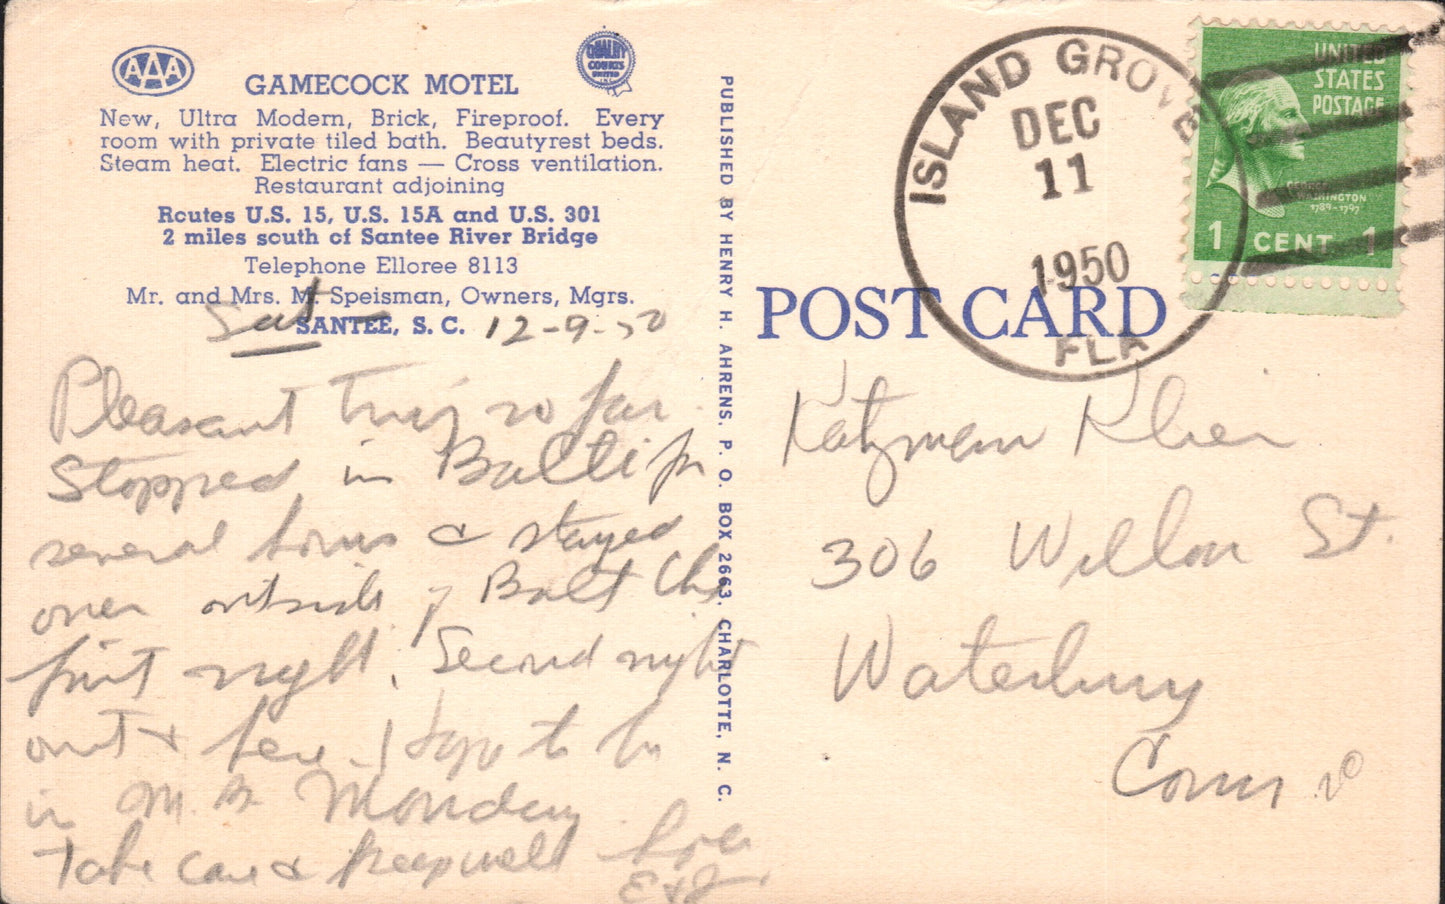 AAA
QUALITY
COURTS
UNITED
INC.
GAMECOCK MOTEL
New, Ultra Modern, Brick, Fireproof. Every
room with private tiled bath. Beautyrest beds.
Steam heat. Electric fans — Cross ventilation.
Restaurant adjoining
Routes U.S. 15, U.S. 15A and U.S. 301
2 miles south of Santee River Bridge
Telephone Elloree 8113
Mr. and Mrs. M. Speisman, Owners, Mgrs.
SANTEE, S. C.
Sat - 12-9-50
Pleasant Trip so far
Stopped in Balti for
several hours & stayed
over outside of Balt the
first night. Second night
out & here. I hope to be
in M. B. Monday
Take care & keep well Love
E & J
PUBLISHED BY HENRY H. AHRENS, P. O. BOX 2663, CHARLOTTE, N. C.
POST CARD
ISLAND GROVE
DEC
11
1950
FLA
UNITED
STATES
POSTAGE
WASHINGTON
1789-1797
1 CENT 1
Katzman
306 St.
Waterbury
Conn 20